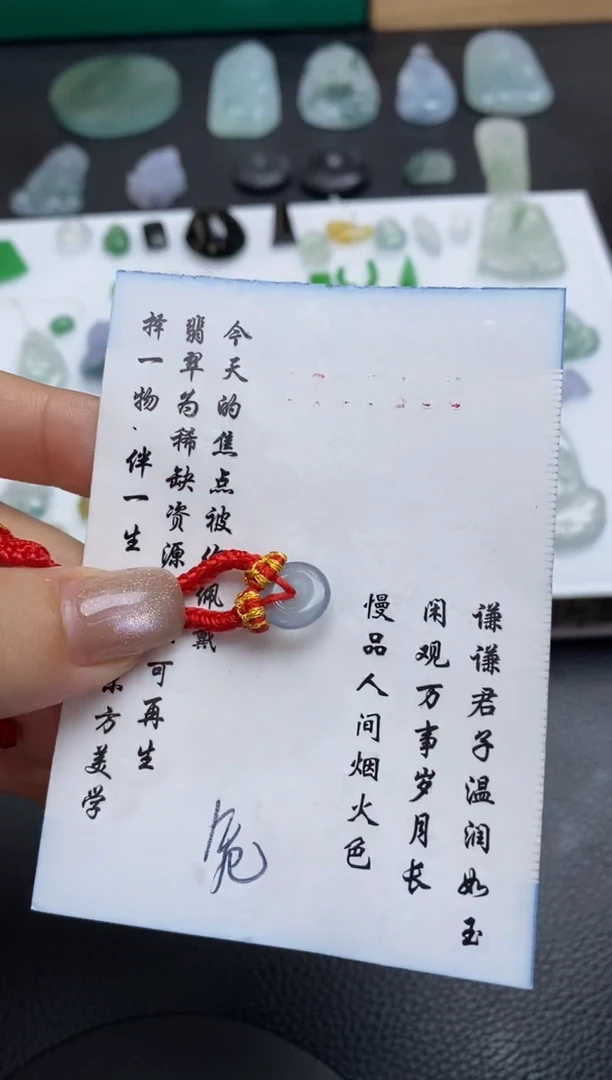 谦谦君子温润如玉
闲观万事岁月长
慢品人间烟火色
今天的焦点被佩戴
翡翠为稀缺资源可再生
择一物、伴一生方美学